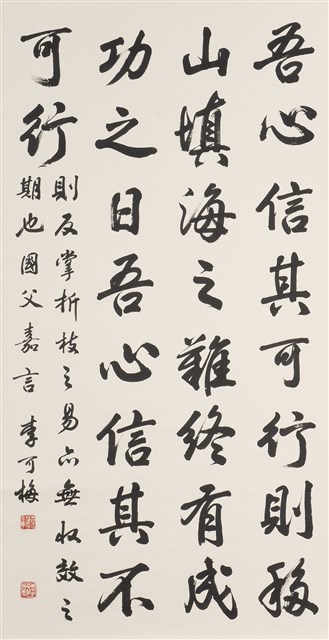 吾心信其可行則移
山填海之難終有成
功之日吾心信其不
可行
則反掌折枝之易亦無收效之
期也國父嘉言 李可梅